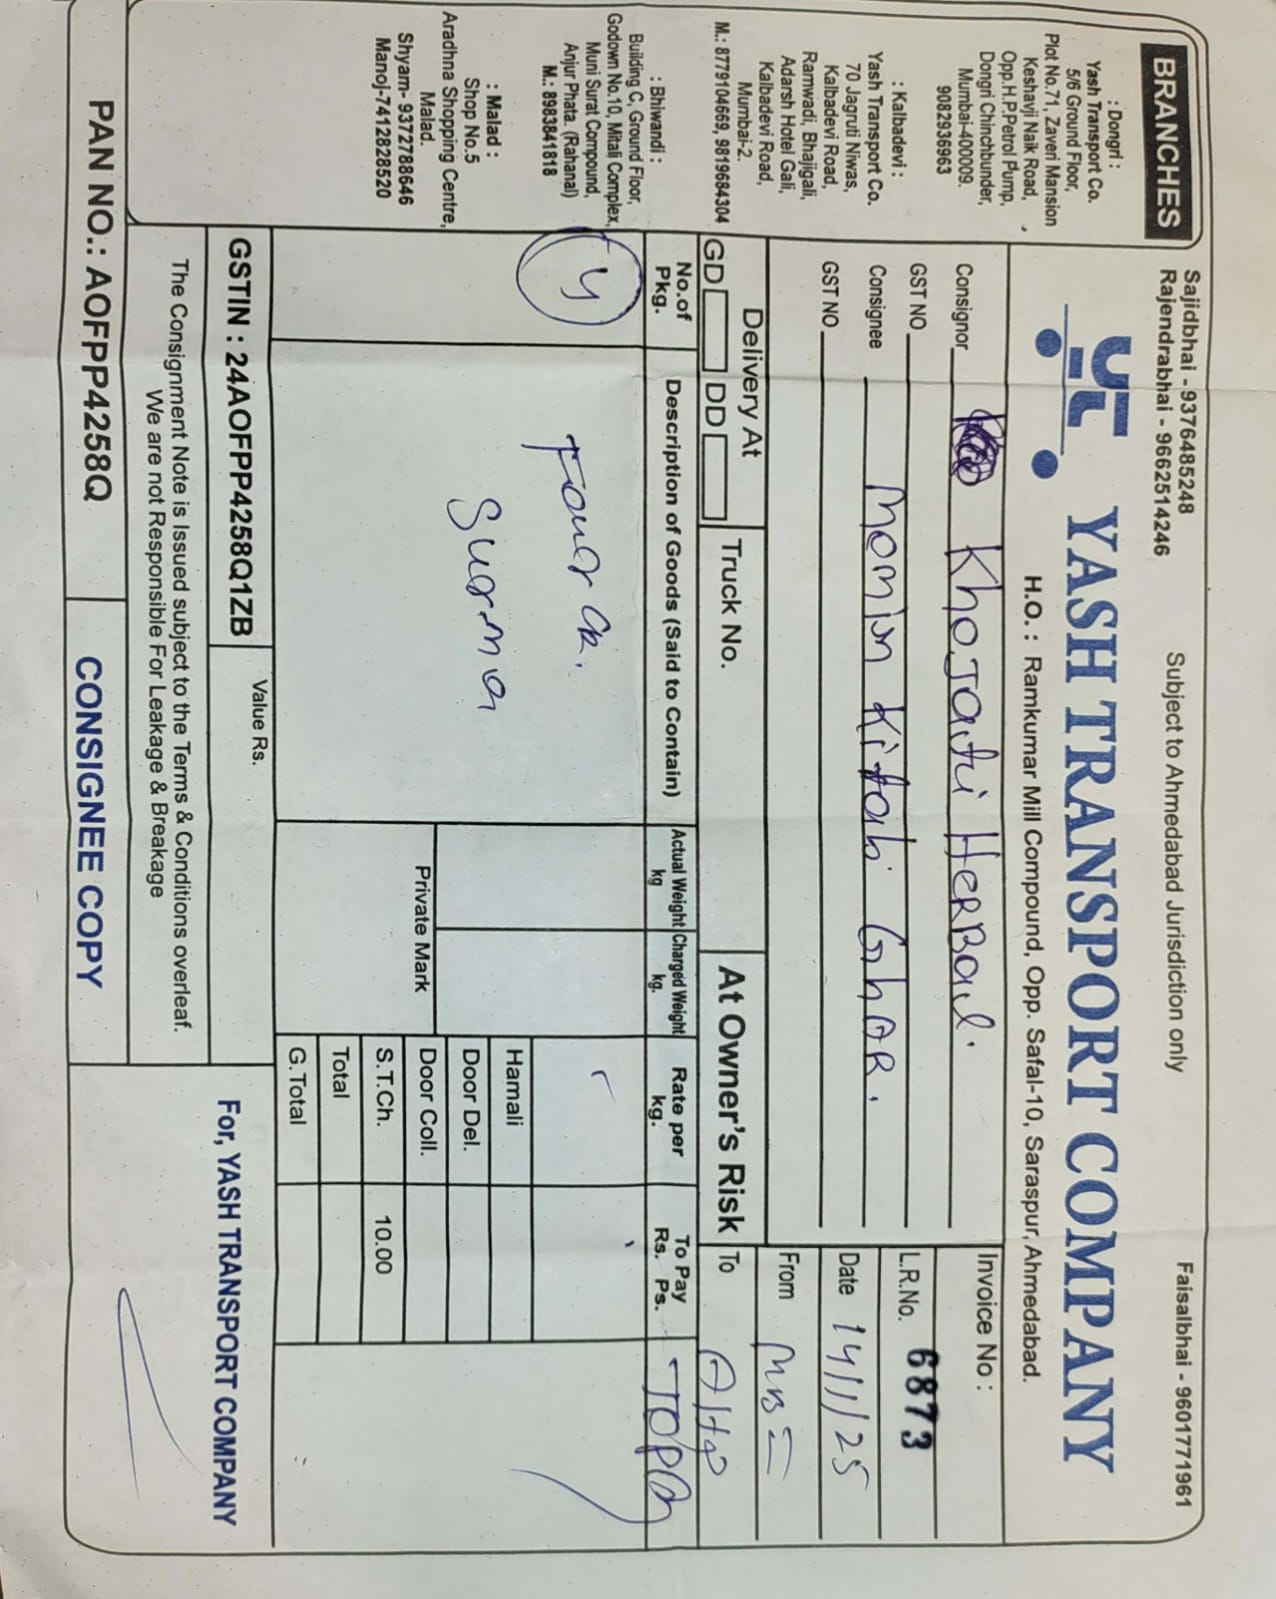 BRANCHES
: Dongri :
Yash Transport Co.
5/6 Ground Floor,
Plot No.71, Zaveri Mansion
Keshavji Naik Road,
Opp.H.P.Petrol Pump,
Dongri Chinchbunder,
Mumbai-400009.
9082936963
: Kalbadevi :
Yash Transport Co.
70 Jagruti Niwas,
Kalbadevi Road,
Ramwadi, Bhajigali,
Adarsh Hotel Gali,
Kalbadevi Road,
Mumbai-2.
M.: 8779104669, 9819684304
: Bhiwandi :
Building C, Ground Floor,
Godown No.10, Mitali Complex,
Muni Surat Compound,
Anjur Phata. (Rahanal)
M.: 8983841818
: Malad :
Shop No.5
Aradhna Shopping Centre,
Malad.
Shyam- 9372788646
Manoj-7412828520
Sajidbhai - 9376485248
Rajendrabhai - 9662514246
Subject to Ahmedabad Jurisdiction only
Faisalbhai - 9601771961
YASH TRANSPORT COMPANY
H.O. : Ramkumar Mill Compound, Opp. Safal-10, Saraspur, Ahmedabad.
Consignor Khojati HERBAL.
GST NO
Consignee Momin Kitab GhAR.
GST NO
Invoice No :
L.R.No. 6873
Date 14/1/25
From
To
Delivery At
GD DD
Truck No.
At Owner's Risk
No.of Pkg.
Description of Goods (Said to Contain)
Actual Weight kg
Charged Weight kg.
Rate per kg.
To Pay Rs. Ps.
TOPAY
4
Four
Surma
Hamali
Door Del.
Door Coll.
S.T.Ch. 10.00
Total
G.Total
Private Mark
GSTIN : 24AOFPP4258Q1ZB
Value Rs.
The Consignment Note is Issued subject to the Terms & Conditions overleaf.
We are not Responsible For Leakage & Breakage
For, YASH TRANSPORT COMPANY
PAN NO.: AOFPP4258Q
CONSIGNEE COPY